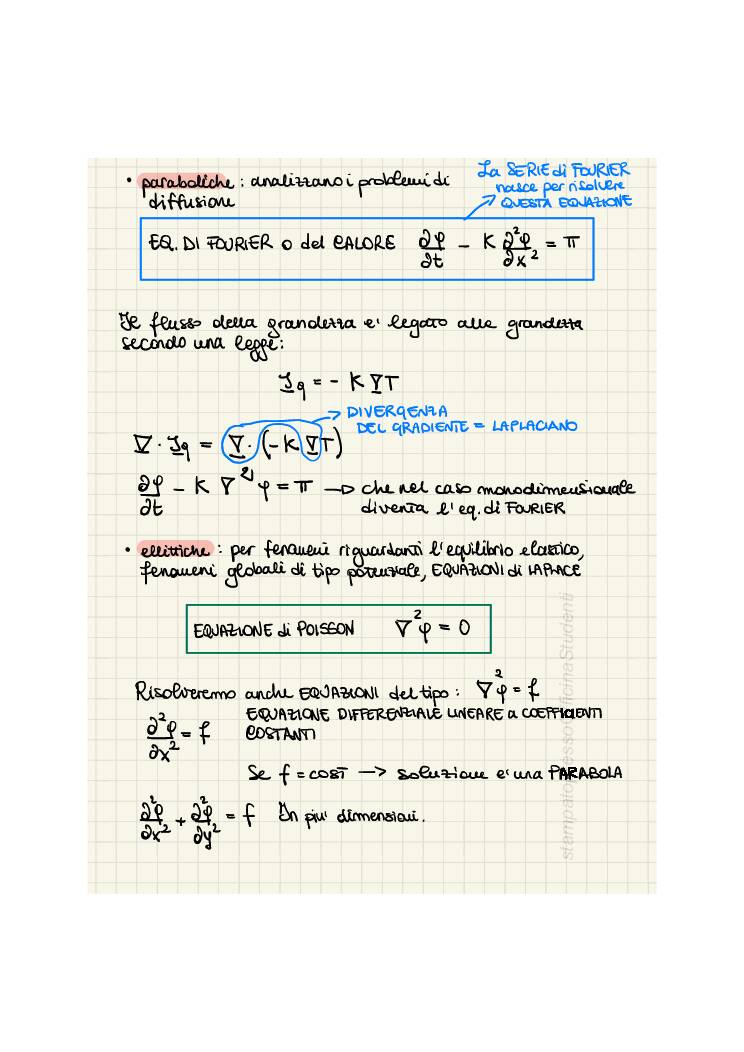 La SERIE di FOURIER
nasce per risolvere
QUESTA EQUAZIONE
• paraboliche : analizzano i problemi di
diffusione
EQ. DI FOURIER o del CALORE ∂φ/∂t - K ∂²φ/∂x² = π
Il flusso della grandezza e' legato alla grandezza
secondo una legge:
J̲q = - K ∇̲T
→ DIVERGENZA
DEL GRADIENTE = LAPLACIANO
∇̲ · J̲q = ∇̲ · (-K ∇̲T)
∂φ/∂t - K ∇²φ = π → che nel caso monodimensionale
diventa l'eq. di FOURIER
• ellittiche : per fenomeni riguardanti l'equilibrio elastico,
fenomeni globali di tipo potenziale, EQUAZIONI di LAPLACE
EQUAZIONE di POISSON ∇²φ = 0
Risolveremo anche EQUAZIONI del tipo : ∇²φ = f
∂²φ/∂x² = f EQUAZIONE DIFFERENZIALE LINEARE a COEFFICIENTI
COSTANTI
Se f = cost → soluzione e' una PARABOLA
∂²φ/∂x² + ∂²φ/∂y² = f In piu' dimensioni.
stampato presso OfficinaStudenti